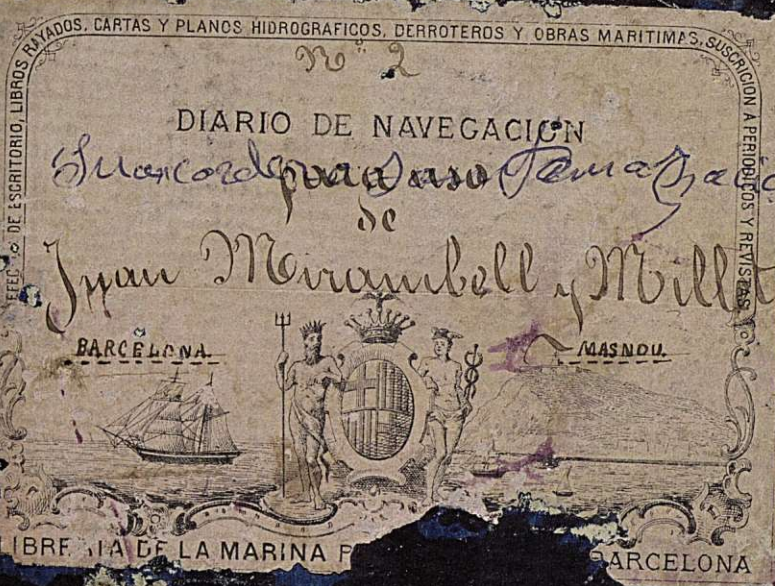 EFEC DE ESCRITORIO, LIBROS RAYADOS, CARTAS Y PLANOS HIDROGRAFICOS, DERROTEROS Y OBRAS MARITIMAS, SUSCRICION A PERIODICOS Y REVISTAS
Nº 2
DIARIO DE NAVEGACION
para uso
de
Juan Mirambell y Millet
BARCELONA.
MASNOU.
LIBRE IA DE LA MARINA P ARCELONA